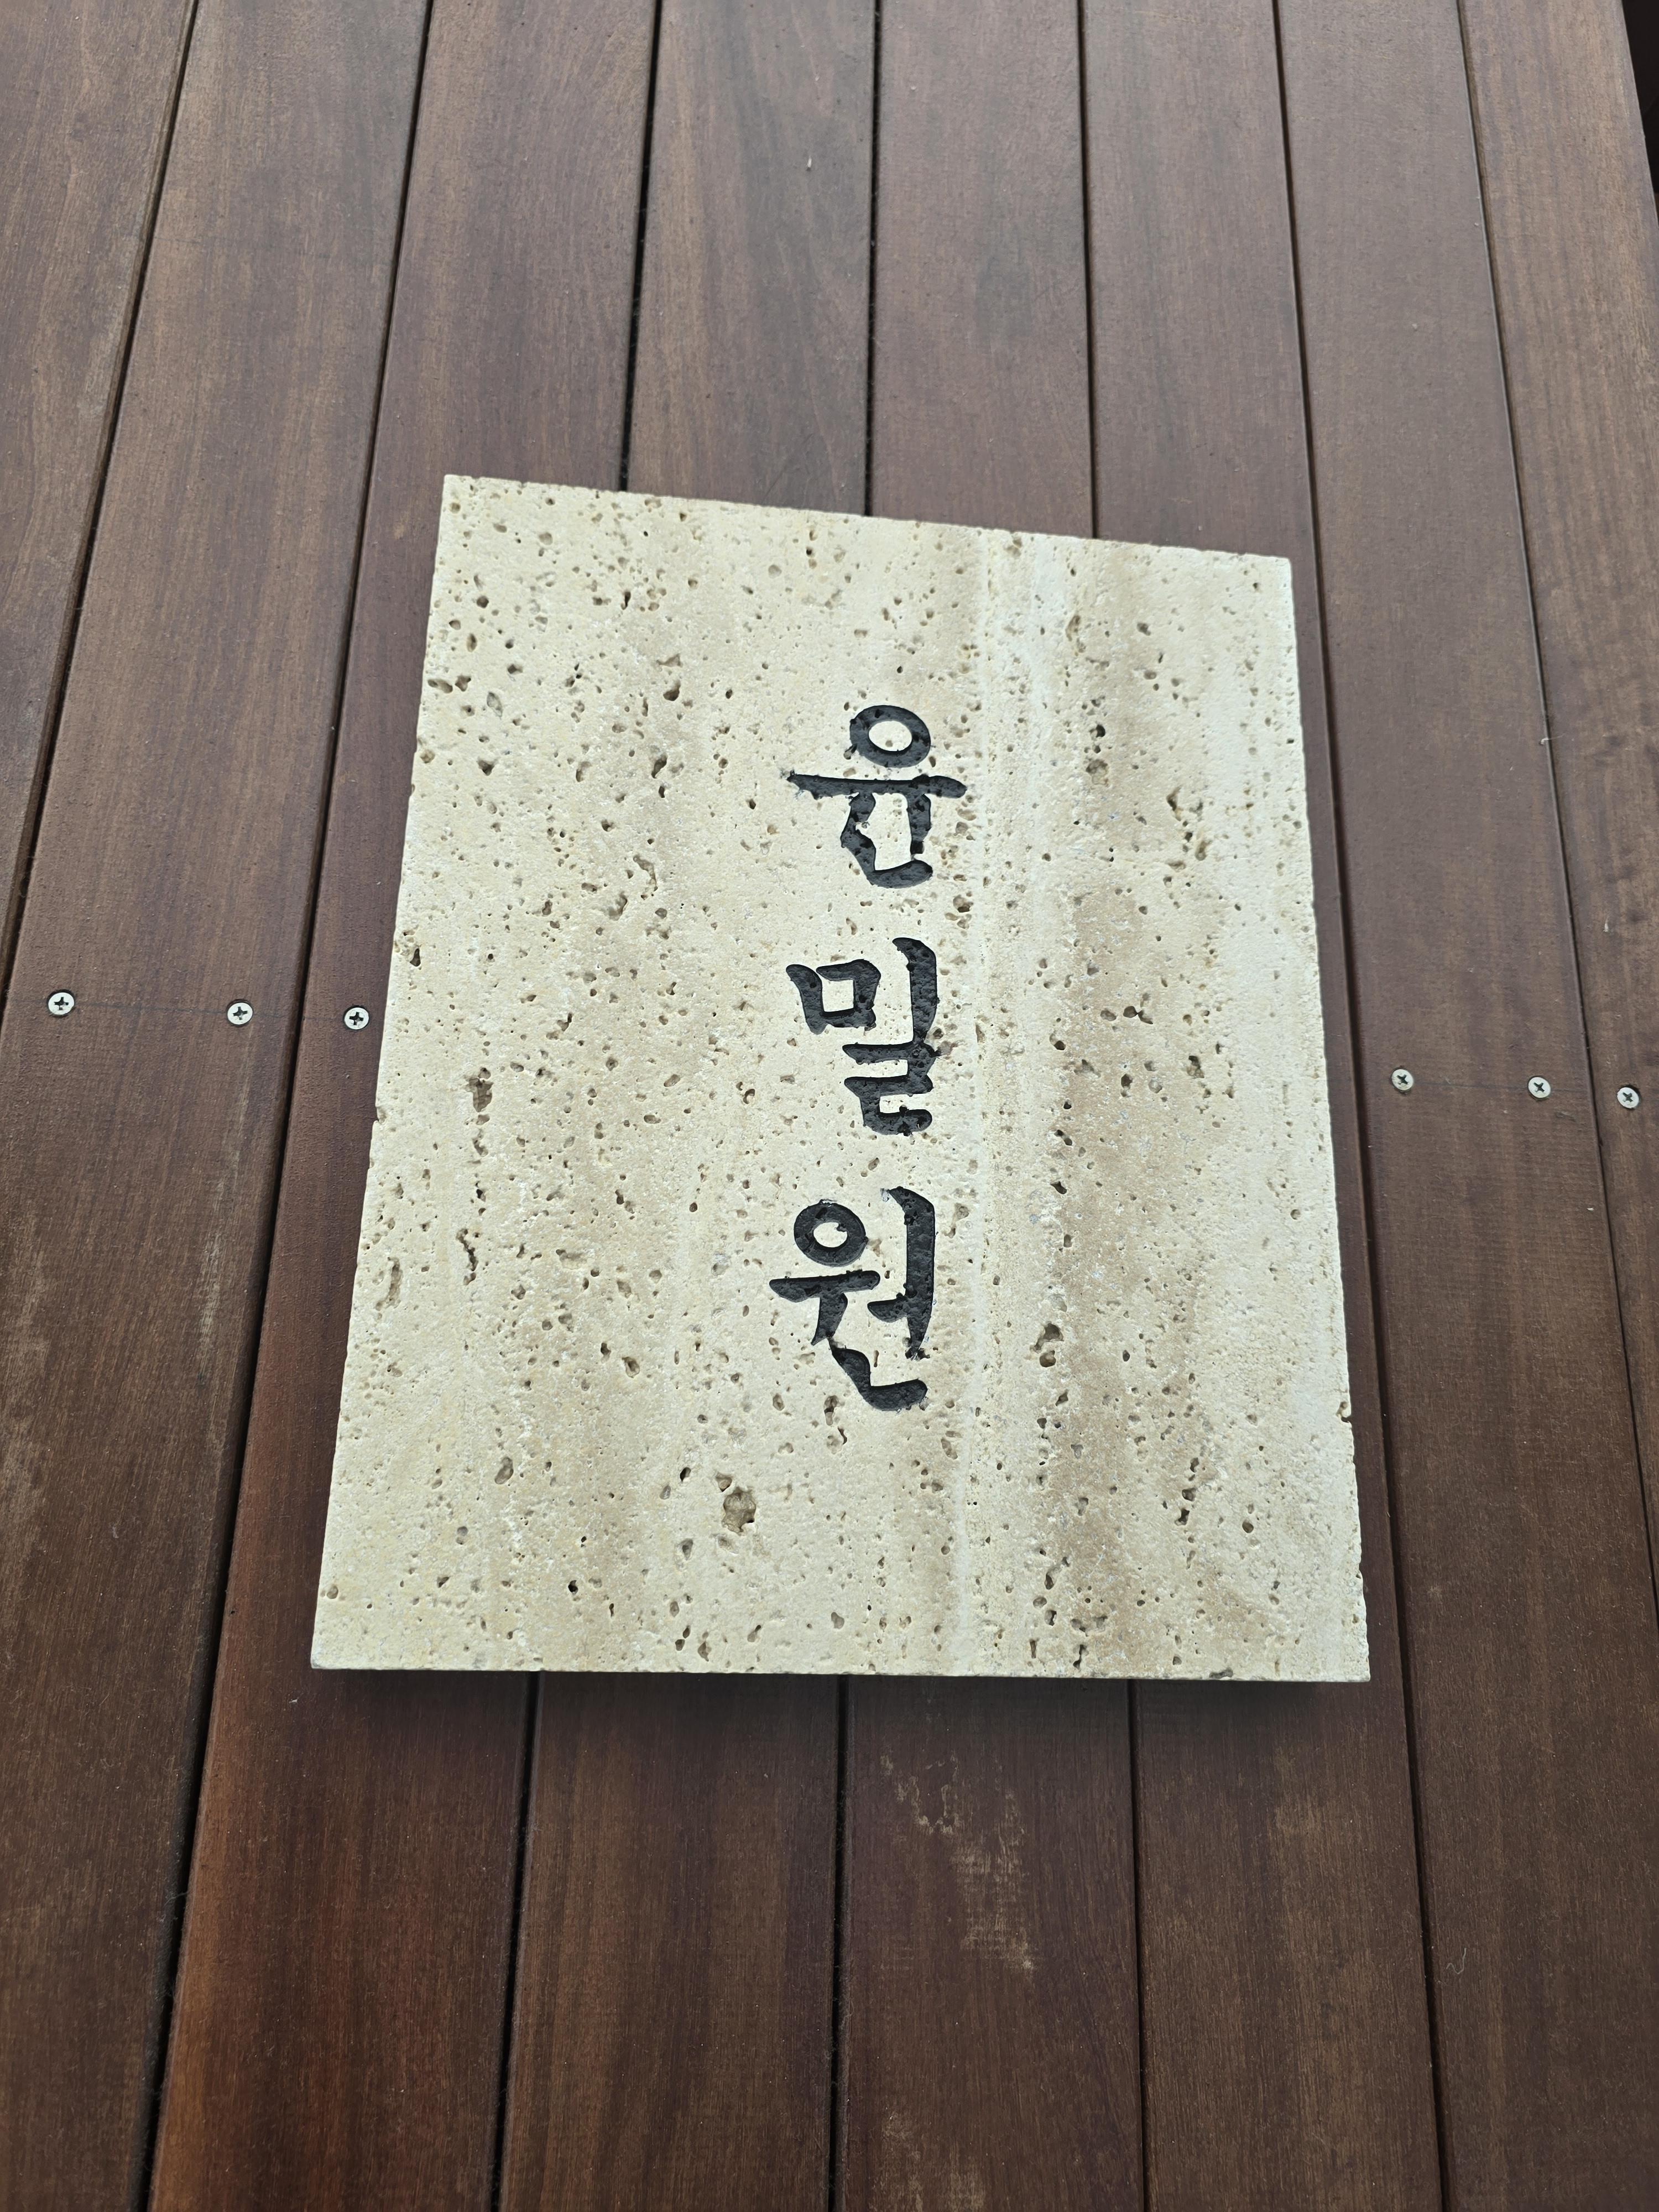 윤밀원